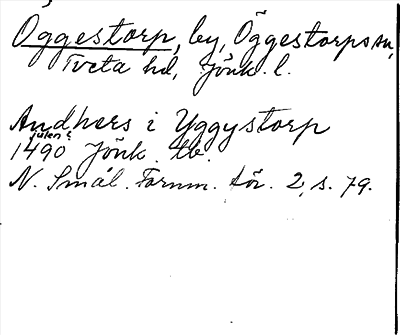 Öggestorp, by, Öggestorps sn,
Tveta hd, Jönk. l.
Andhers i Yggystorp
1490 Jönk. tb.
N. Smål. Fornm. för. 2, s. 79.